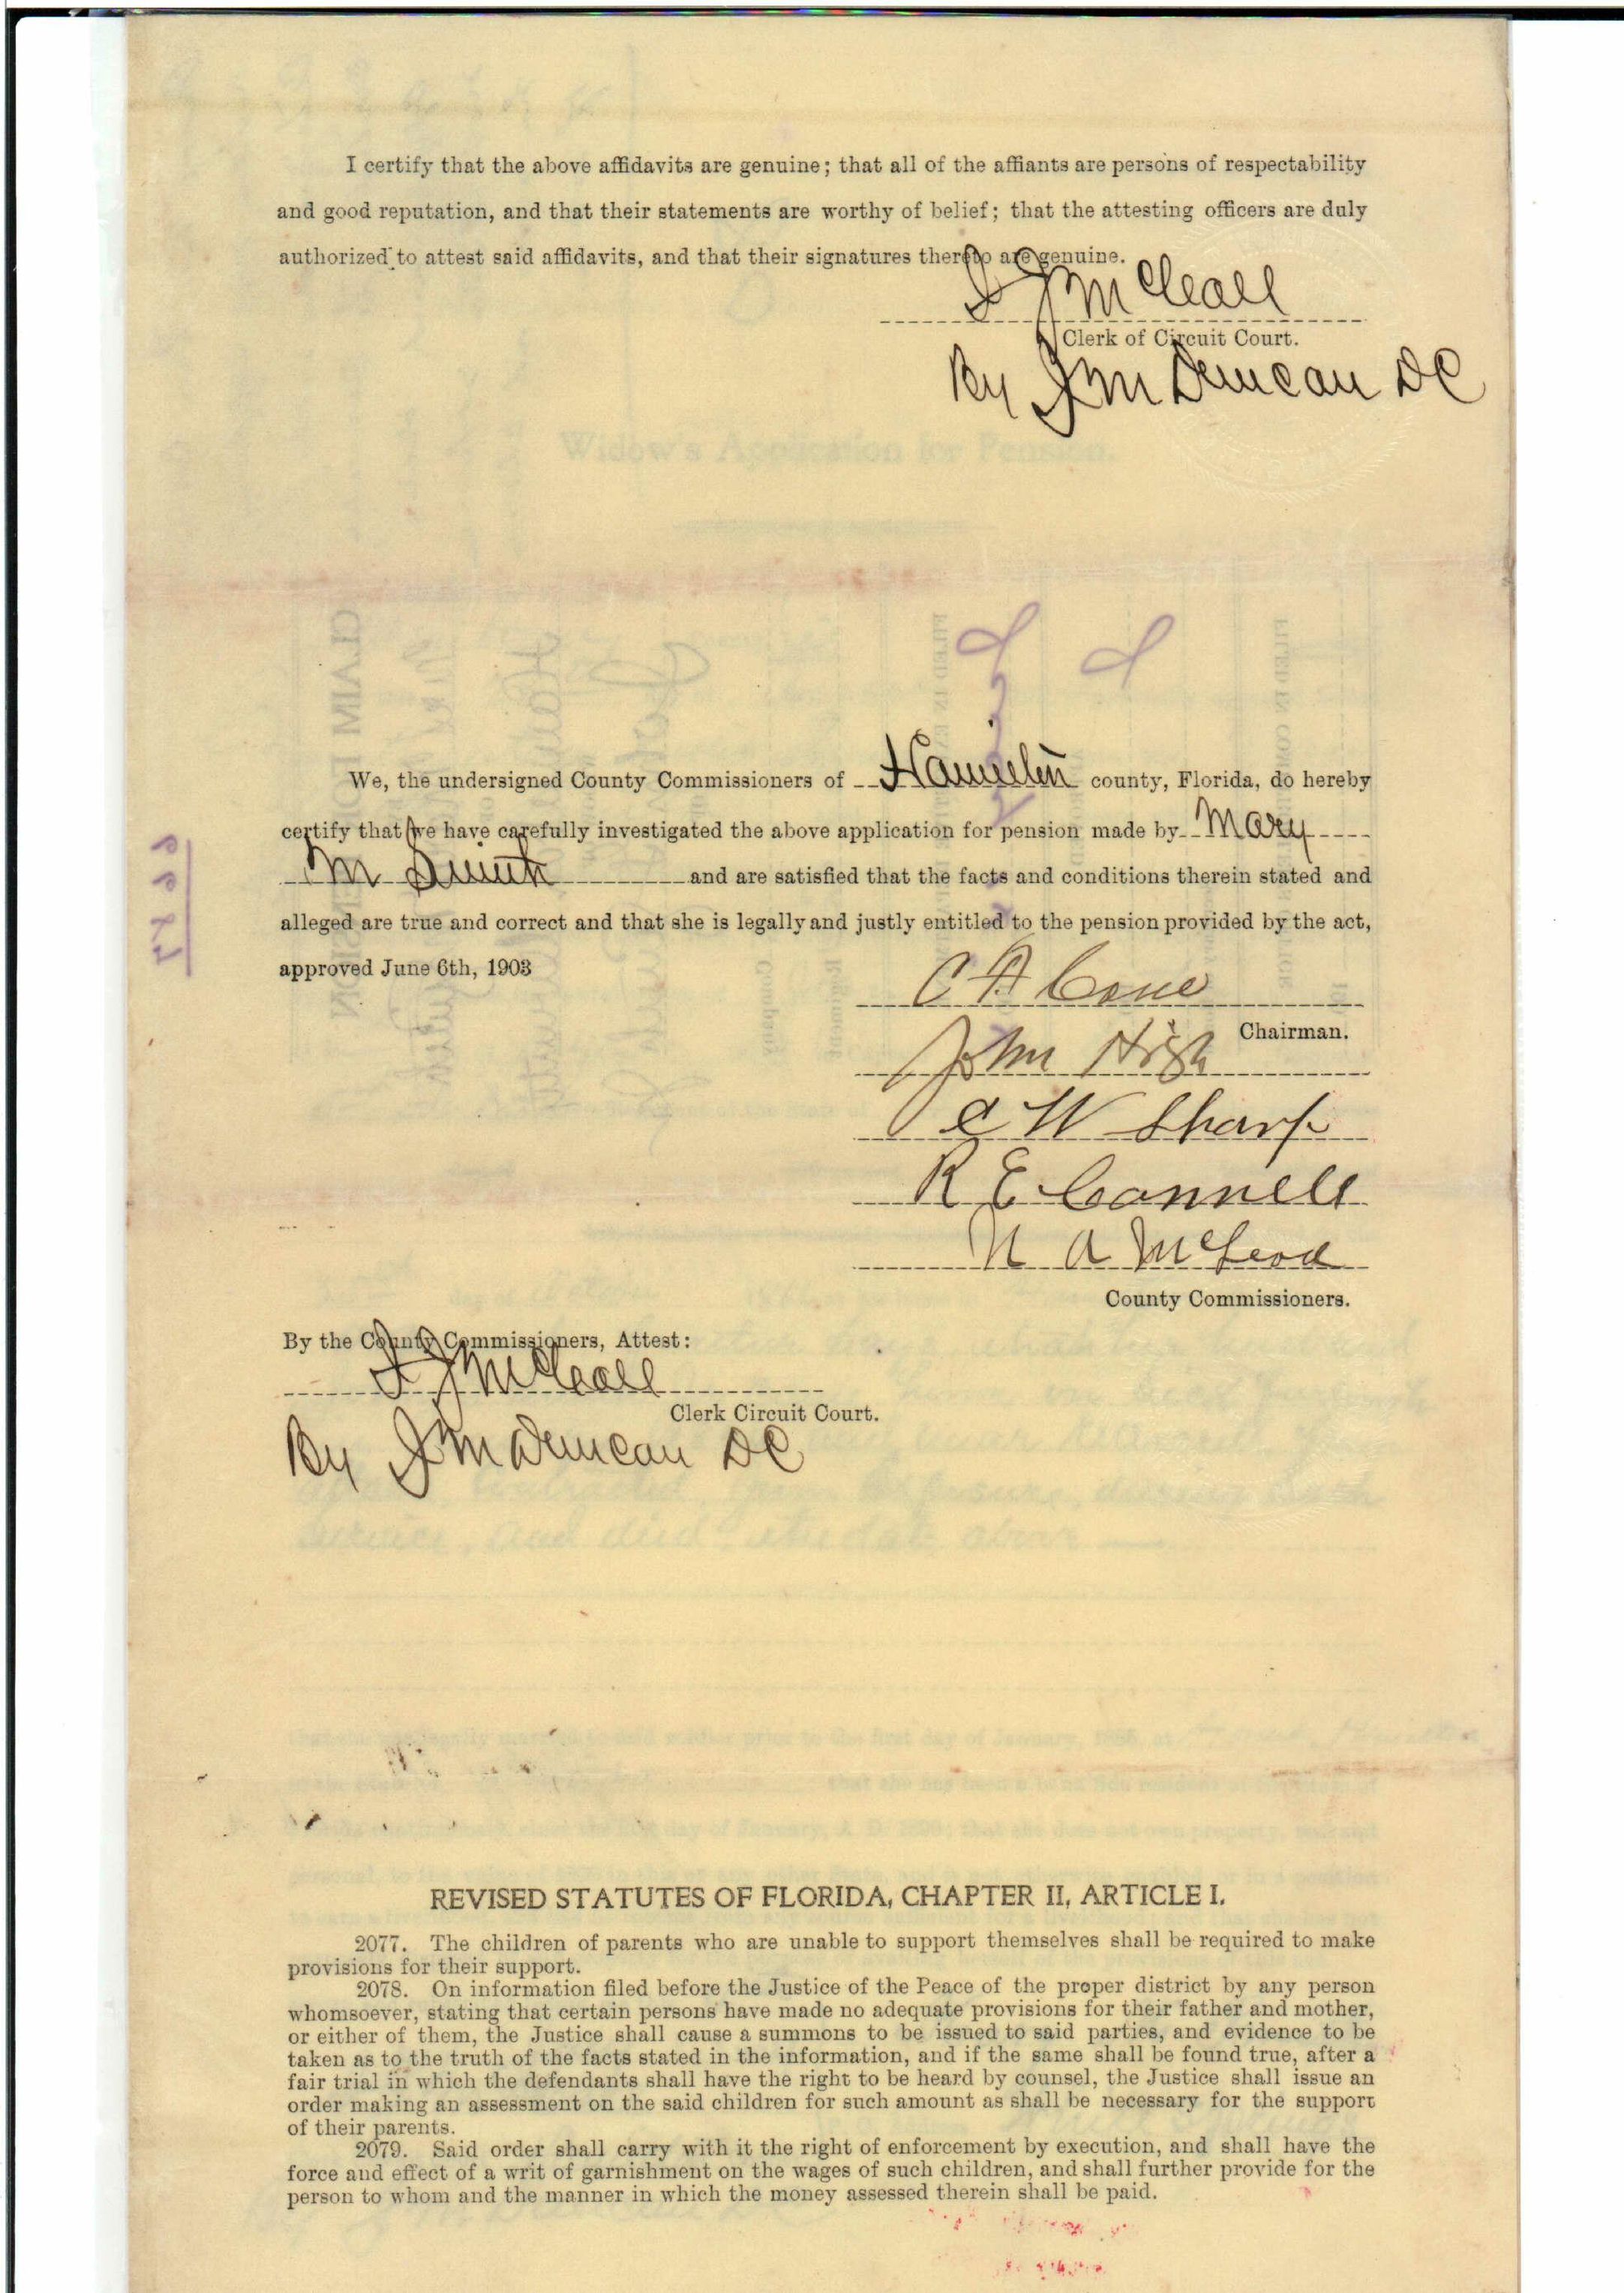 I certify that the above affidavits are genuine; that all of the affiants are persons of respectability
and good reputation, and that their statements are worthy of belief; that the attesting officers are duly
authorized to attest said affidavits, and that their signatures thereto are genuine.
Clerk of Circuit Court.
By J M Duncan DC
Widow's Application for Pension.
We, the undersigned County Commissioners of Hamilton county, Florida, do hereby
certify that we have carefully investigated the above application for pension made by Mary
M Smith and are satisfied that the facts and conditions therein stated and
alleged are true and correct and that she is legally and justly entitled to the pension provided by the act,
approved June 6th, 1903
C A Cone
Chairman.
John High
C W Sharp
R E Cannell
N A McLeod
County Commissioners.
By the County Commissioners, Attest:
Clerk Circuit Court.
By J M Duncan DC
REVISED STATUTES OF FLORIDA, CHAPTER II, ARTICLE I.
2077. The children of parents who are unable to support themselves shall be required to make
provisions for their support.
2078. On information filed before the Justice of the Peace of the proper district by any person
whomsoever, stating that certain persons have made no adequate provisions for their father and mother,
or either of them, the Justice shall cause a summons to be issued to said parties, and evidence to be
taken as to the truth of the facts stated in the information, and if the same shall be found true, after a
fair trial in which the defendants shall have the right to be heard by counsel, the Justice shall issue an
order making an assessment on the said children for such amount as shall be necessary for the support
of their parents.
2079. Said order shall carry with it the right of enforcement by execution, and shall have the
force and effect of a writ of garnishment on the wages of such children, and shall further provide for the
person to whom and the manner in which the money assessed therein shall be paid.